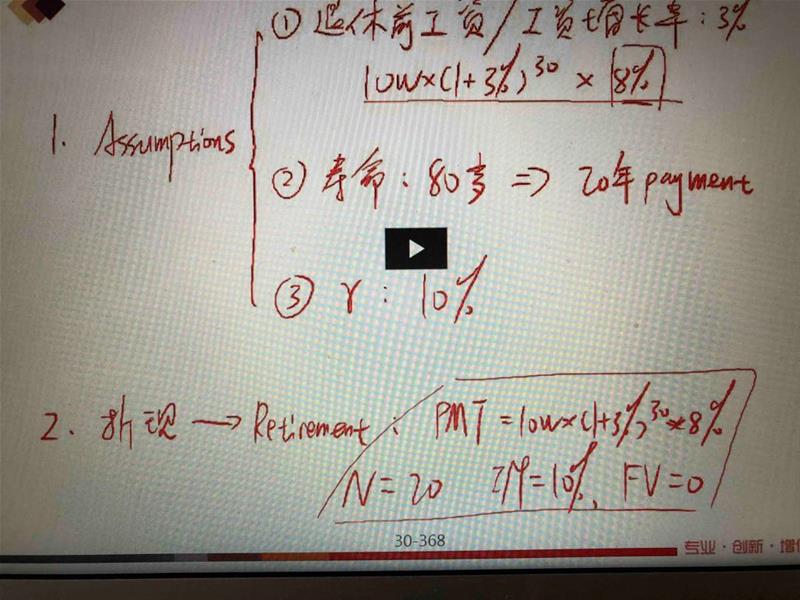 ① 退休前工资/工资增长率:3%
10w×(1+3%)^30 × 8%
1. Assumptions
② 寿命:80岁 => 20年payment
③ r: 10%
2. 折现 → Retirement: PMT=10w×(1+3%)^30×8%
N=20 I/Y=10%, FV=0
30-368
专业·创新·增值